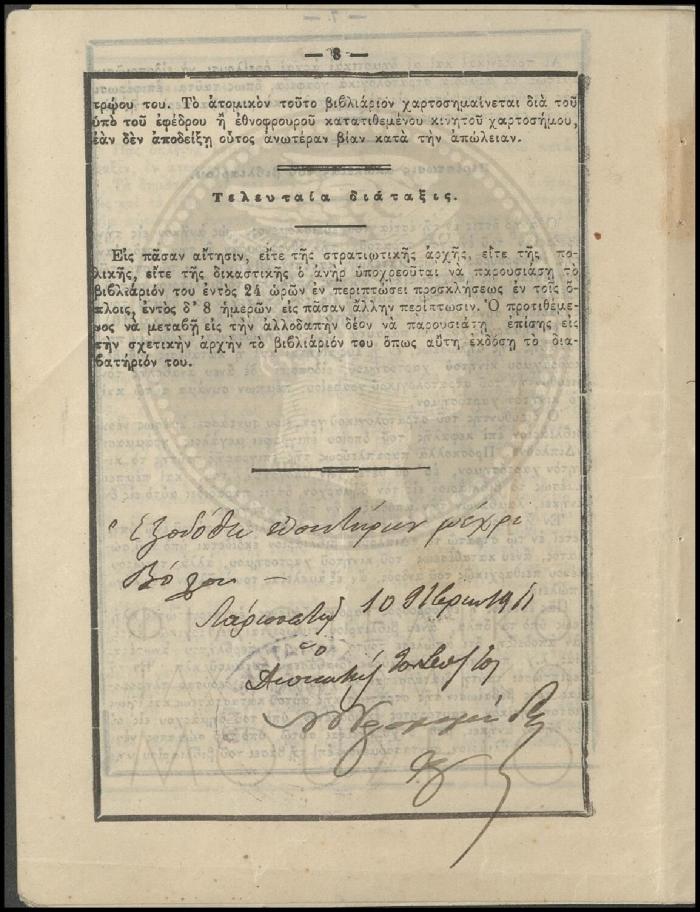 — 8 —
τρῴου του. Τὸ ἀτομικὸν τοῦτο βιβλιάριον χαρτοσημαίνεται διὰ τοῦ
ὑπὸ τοῦ ἐφέδρου ἢ ἐθνοφρουροῦ κατατιθεμένου κινητοῦ χαρτοσήμου,
ἐὰν δὲν ἀποδείξῃ οὗτος ἀνωτέραν βίαν κατὰ τὴν ἀπώλειαν.
Τελευταία διάταξις.
Εἰς πᾶσαν αἴτησιν, εἴτε τῆς στρατιωτικῆς ἀρχῆς, εἴτε τῆς πο-
λικῆς, εἴτε τῆς δικαστικῆς ὁ ἀνὴρ ὑποχρεοῦται νὰ παρουσιάσῃ τὸ
βιβλιάριόν του ἐντὸς 24 ὡρῶν ἐν περιπτώσει προσκλήσεως ἐν τοῖς ὅ-
πλοις, ἐντὸς δ' 8 ἡμερῶν εἰς πᾶσαν ἄλλην περίπτωσιν. Ὁ προτιθέμε-
νος νὰ μεταβῇ εἰς τὴν ἀλλοδαπὴν δέον νὰ παρουσιάζῃ ἐπίσης εἰς
τὴν σχετικὴν ἀρχὴν τὸ βιβλιάριόν του ὅπως αὕτη ἐκδόσῃ τὸ δια-
βατήριόν του.
Ἐξεδόθη εἰσιτήριον μέχρι
Βόλου —
10 1911
Ὁ
Διοικητὴς